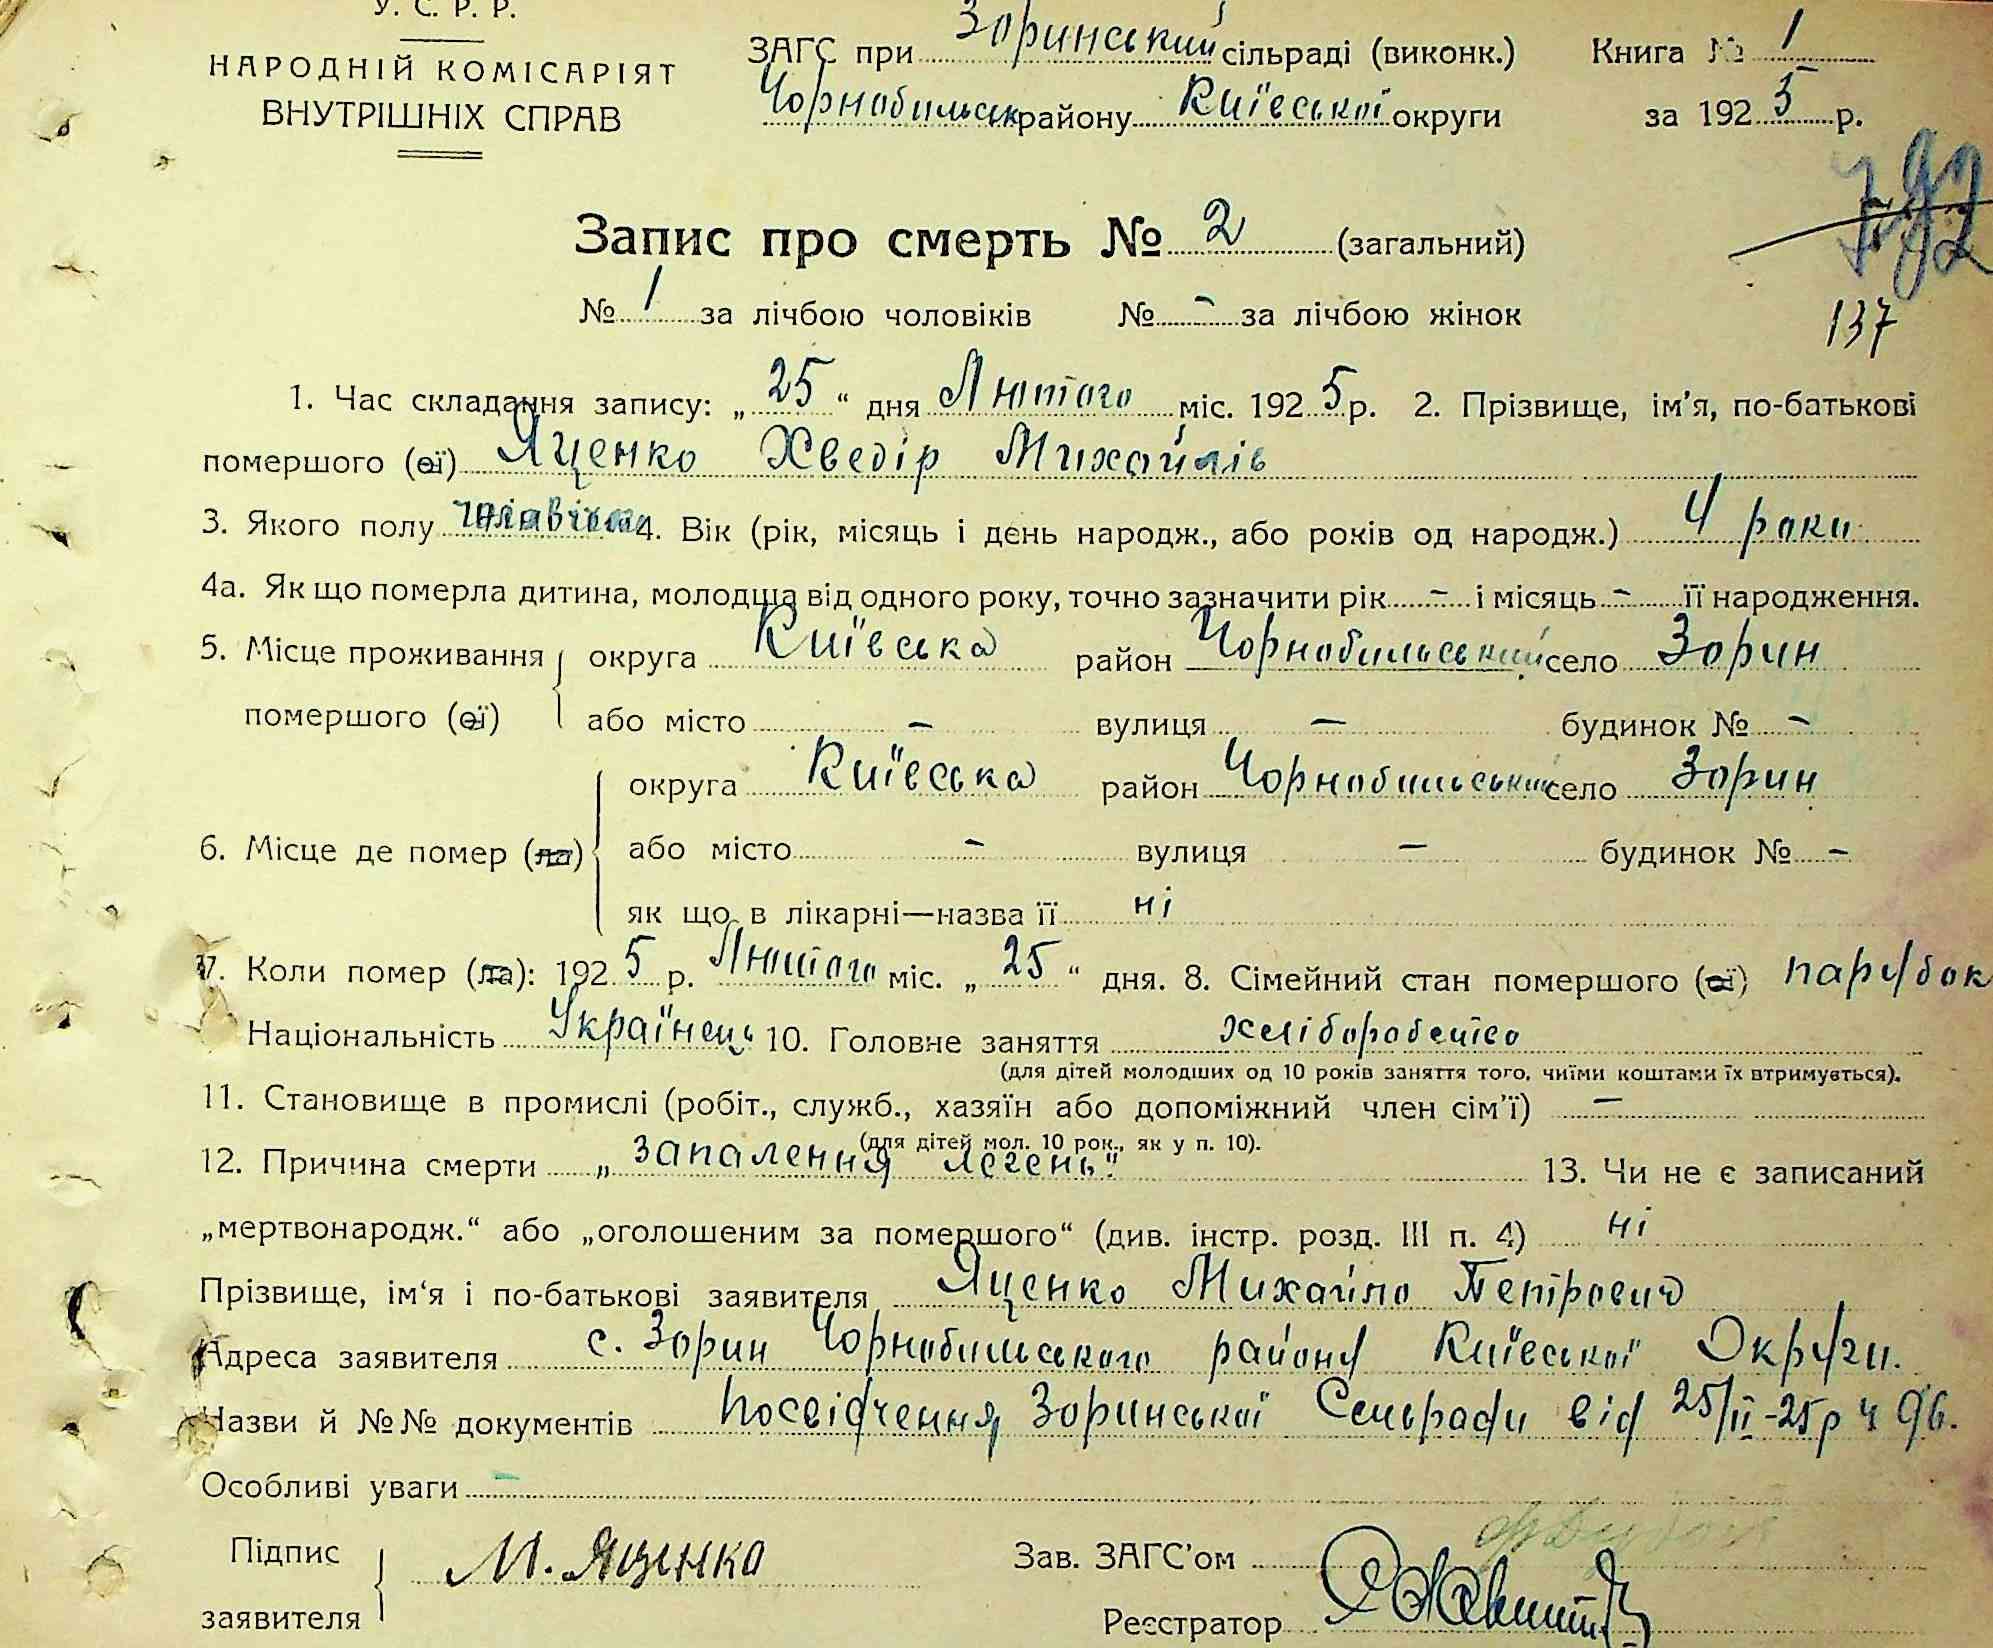 У. С. Р. Р.
НАРОДНІЙ КОМІСАРІЯТ
ВНУТРІШНІХ СПРАВ
ЗАГС при Зоринський сільраді (виконк.) Книга № 1
Чорнобильськ району Київської округи за 1925 р.
Запис про смерть № 2 (загальний)
№ 1 за лічбою чоловіків № - за лічбою жінок
137
1. Час складання запису: „25“ дня Лютого міс. 1925 р. 2. Прізвище, ім'я, по-батькові
помершого (ої) Яценко Хведір Михайлів
3. Якого полу чоловічого 4. Вік (рік, місяць і день народж., або років од народж.) 4 роки
4а. Як що померла дитина, молодша від одного року, точно зазначити рік - і місяць - її народження.
5. Місце проживання округа Київська район Чорнобильський село Зорин
помершого (ої) або місто - вулиця - будинок № -
округа Київська район Чорнобильський село Зорин
6. Місце де помер (ла) або місто - вулиця - будинок № -
як що в лікарні—назва її ні
7. Коли помер (ла): 1925 р. Лютого міс. „25“ дня. 8. Сімейний стан помершого (ої) парубок
Національність Українець 10. Головне заняття хліборобство
(для дітей молодших од 10 років заняття того, чиїми коштами їх втримується).
11. Становище в промислі (робіт., служб., хазяїн або допоміжний член сім'ї) -
(для дітей мол. 10 рок., як у п. 10).
12. Причина смерти „запалення легень“ 13. Чи не є записаний
„мертвонародж.“ або „оголошеним за помершого“ (див. інстр. розд. III п. 4) ні
Прізвище, ім'я і по-батькові заявителя Яценко Михайло Петрович
Адреса заявителя с. Зорин Чорнобильського району Київської Округи.
Назви й №№ документів Посвідчення Зоринської Сельради від 25/II-25р ч 96.
Особливі уваги -
Підпис заявителя М. Яценко
Зав. ЗАГС'ом
Реєстратор